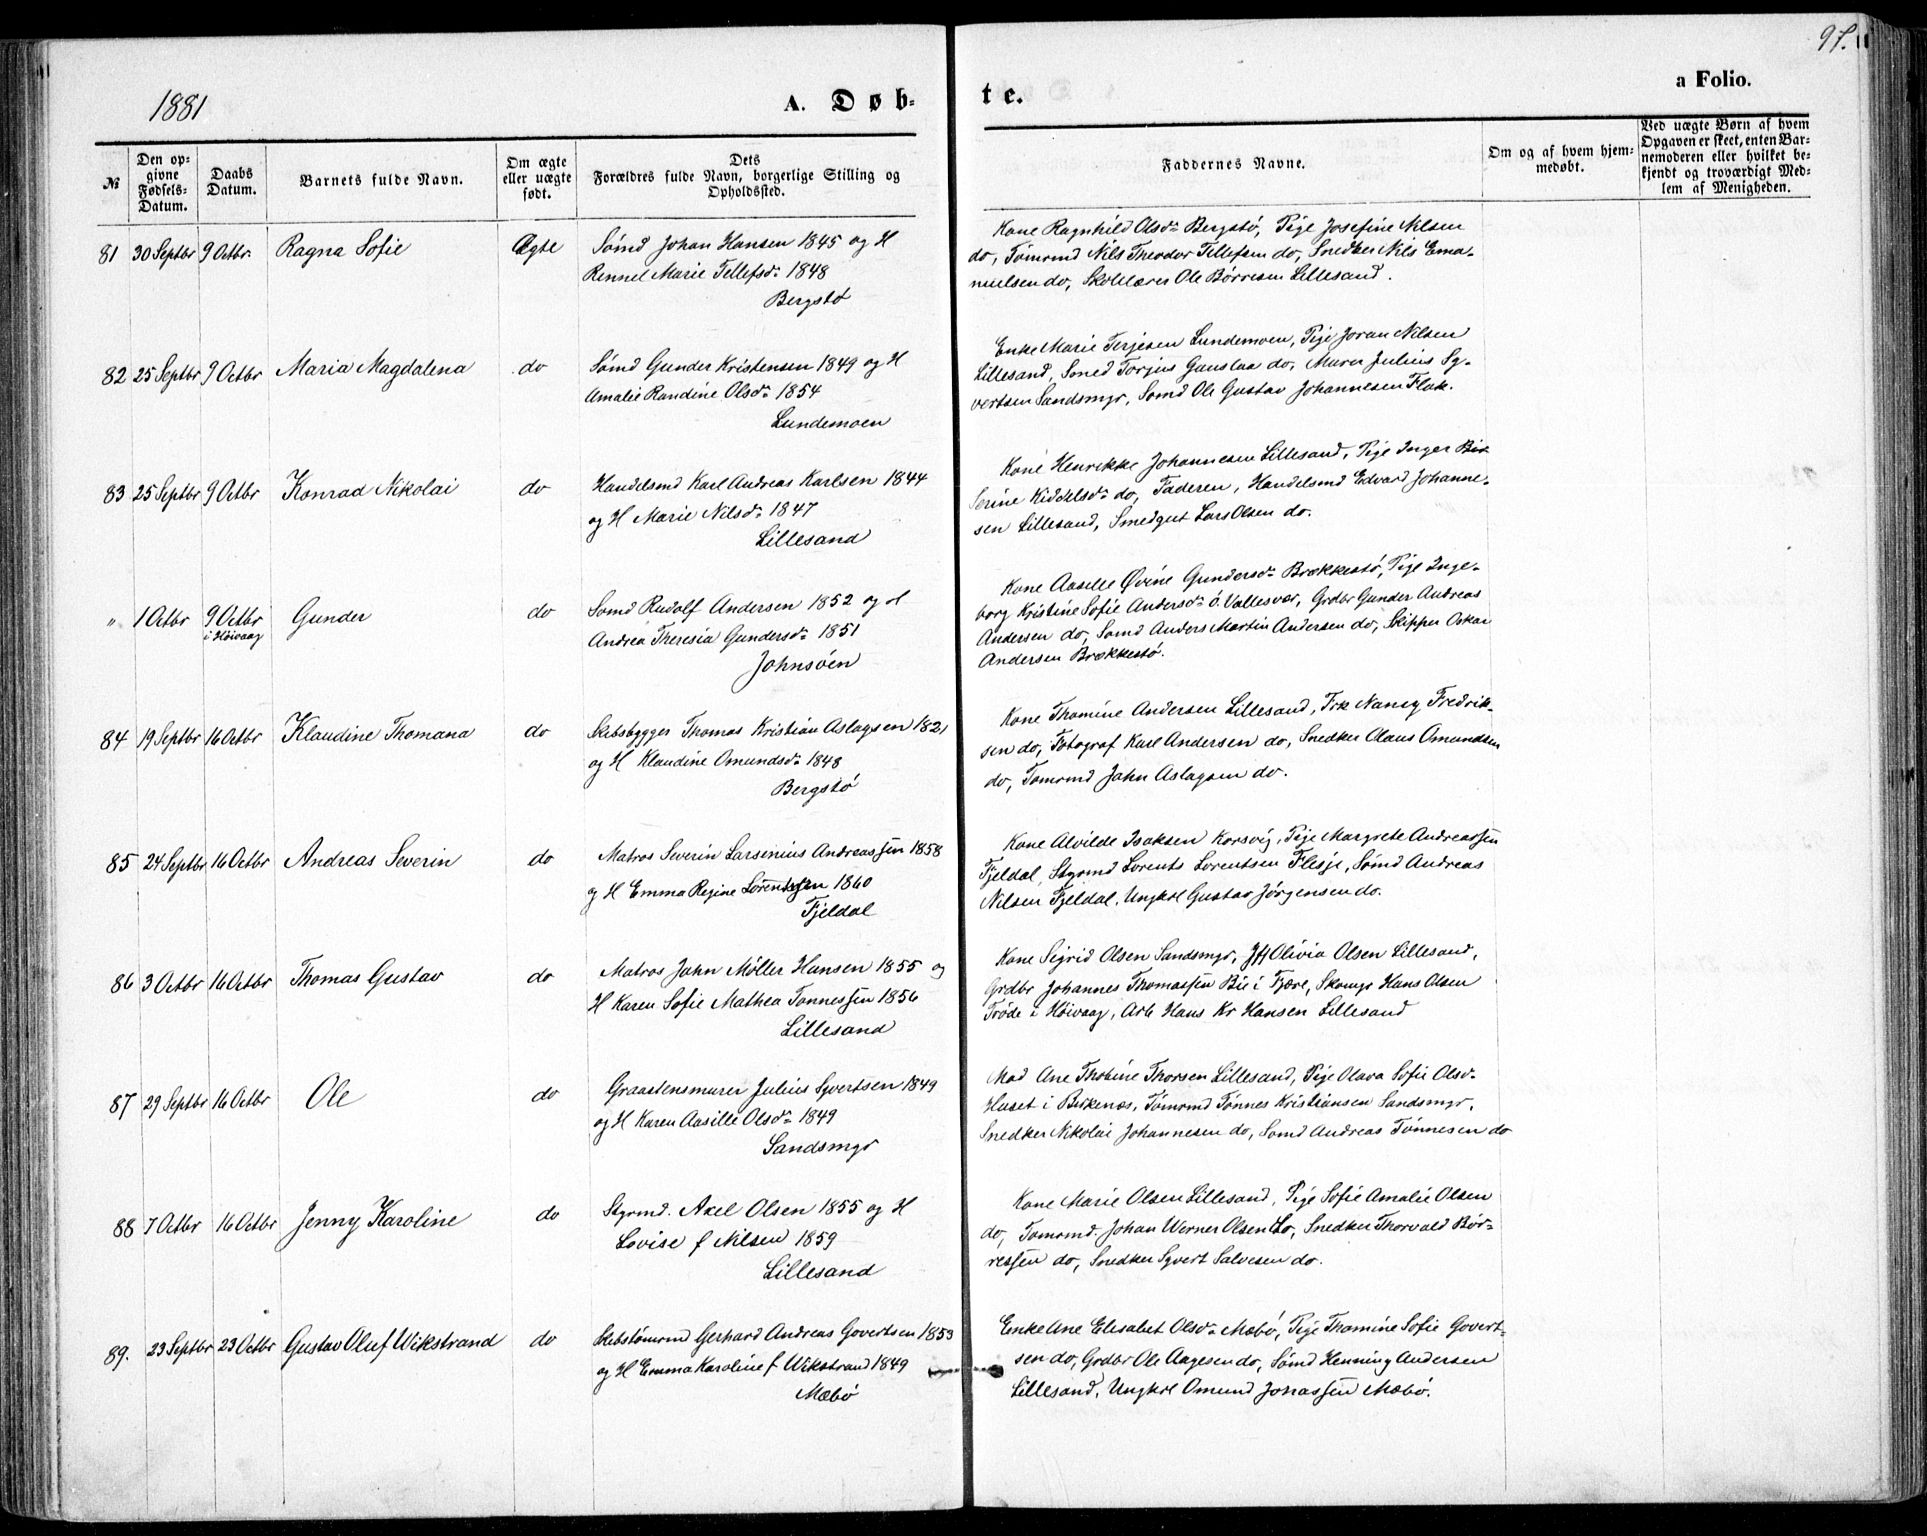 1881
A. Døb-
№
Den op-
givne
Fødsels-
Datum.
Daabs
Datum.
Barnets fulde Navn.
Om ægte
eller uægte
født.
Dets
Forældres fulde Navn, borgerlige Stilling og
Opholdssted.
81 30 Septbr 9 Octbr. Ragna Sofie Ægte Sømd Johan Hansen 1845 og H
Rennel Marie Tellefsd. 1848
Bergstø
82 25 Septbr 9 Octbr Maria Magdalena do Sømd Gunder Kristensen 1849 og H
Amalie Randine Olsd. 1854
Lundemoen
83 25 Septbr 9 Octbr Konrad Nikolai do Handelsmd Karl Andreas Karlsen 1844
og H Marie Nilsd. 1847
Lillesand
" 1 Octbr 9 Octbr Gunder do Somd Rudolf Andersen 1852 og H
i Høivaag Andrea Theresia Gundersd. 1851
Johnsøen
84 19 Septbr 16 Octbr Klaudine Thomana do Skibsbygger Thomas Kristian Aslagsen 1821
og H Klaudine Omundsd. 1848
Bergstø
85 24 Septbr 16 Octbr Andreas Severin do Matros Severin Larsenius Andreassen 1858
og H Emma Regine Lorentsen 1860
Fjeldal
86 3 Octbr 16 Octbr Thomas Gustav do Matros John Møller Hansen 1855 og
H Karen Sofie Mathea Tønnessen 1856
Lillesand
87 29 Septbr 16 Octbr Ole do Graastensmurer Julius Syvertsen 1849
og H Karen Aasille Olsd. 1849
Sandsmyr
88 7 Octbr 16 Octbr Jenny Karoline do Styrmd. Axel Olsen 1855 og H
Lovise f Nilsen 1859
Lillesand
89. 23 Septbr 23 Octbr Gustav Oluf Wikstrand do Skibstømrmd Gerhard Andreas Govertsen 1853
og H Emma Karoline f Wikstrand 1849
Mæbø
97.
te.
a Folio.
Faddernes Navne.
Om og af hvem hjem-
medøbt.
Ved uægte Børn af hvem
Opgaven er skeet, enten Bar-
nemoderen eller hvilket be-
kjendt og troværdigt Med-
lem af Menigheden.
Kone Ragnhild Olsd. Bergstø, Pige Josefine Nilsen
do, Tømrmd Nils Theodor Tellefsen do, Snedker Nils Ema-
nuelsen do, Skolelærer Ole Børresen Lillesand.
Enke Marie Terjesen Lundemoen, Pige Joran Nilsen
Lillesand, Smed Torjus Gauslaa do, Murer Julius Sy-
vertsen Sandsmyr, Somd Ole Gustav Johannesen Flak.
Kone Henrikke Johannesen Lillesand, Pige Inger
Serine Kiddelsd. do, Faderen, Handelsmd Edvard Johanne-
sen Lillesand, Smedgut Lars Olsen do.
Kone Aasille Øvine Gundersd. Brækkestø, Pige Inge-
borg Kristine Sofie Andersd. ö. Vallesvær, Grdbr Gunder Andreas
Andersen do, Somd Anders Martin Andersen do, Skipper Oskar
Andersen Brækkestø.
Kone Thomine Andersen Lillesand, Frk Nancy Fredrik-
sen do, Fotograf Karl Andersen do, Snedker Olaus Omundsen
do, Tømrmd John Aslagsen do.
Kone Alvilde Isaksen Korsvig, Pige Margrete Andreassen
Fjeldal, Styrmd Lorents Lorentsen Flesje, Sømd Andreas
Nilsen Fjeldal, Ungkrl Gustav Jørgensen do.
Kone Sigrid Olsen Sandsmyr, Jfr Olivia Olsen Lillesand,
Grdbr Johannes Thomassen Bie i Fjære, Skomgr Hans Olsen
Trøde i Høivaag, Arb Hans Kr Hansen Lillesand
Mad Ane Thobine Thorsen Lillesand, Pige Olava Sofie Olsd.
Huset i Birkenæs, Tømrmd Tønnes Kristiansen Sandsmyr,
Snedker Nikolai Johannesen do, Somd Andreas Tønnesen do
Kone Marie Olsen Lillesand, Pige Sofie Amalie Olsen
do, Tømrmd. Johan Werner Olsen do, Snedker Thorvald Bør-
ressen do, Snedker Syvert Salvesen do.
Enke Ane Elisabet Olsd. Mæbø, Pige Thomine Sofie Govert-
sen do, Grdbr Ole Aagesen do, Sømd Henning Andersen
Lillesand, Ungkrl Omund Jonassen Mæbø.